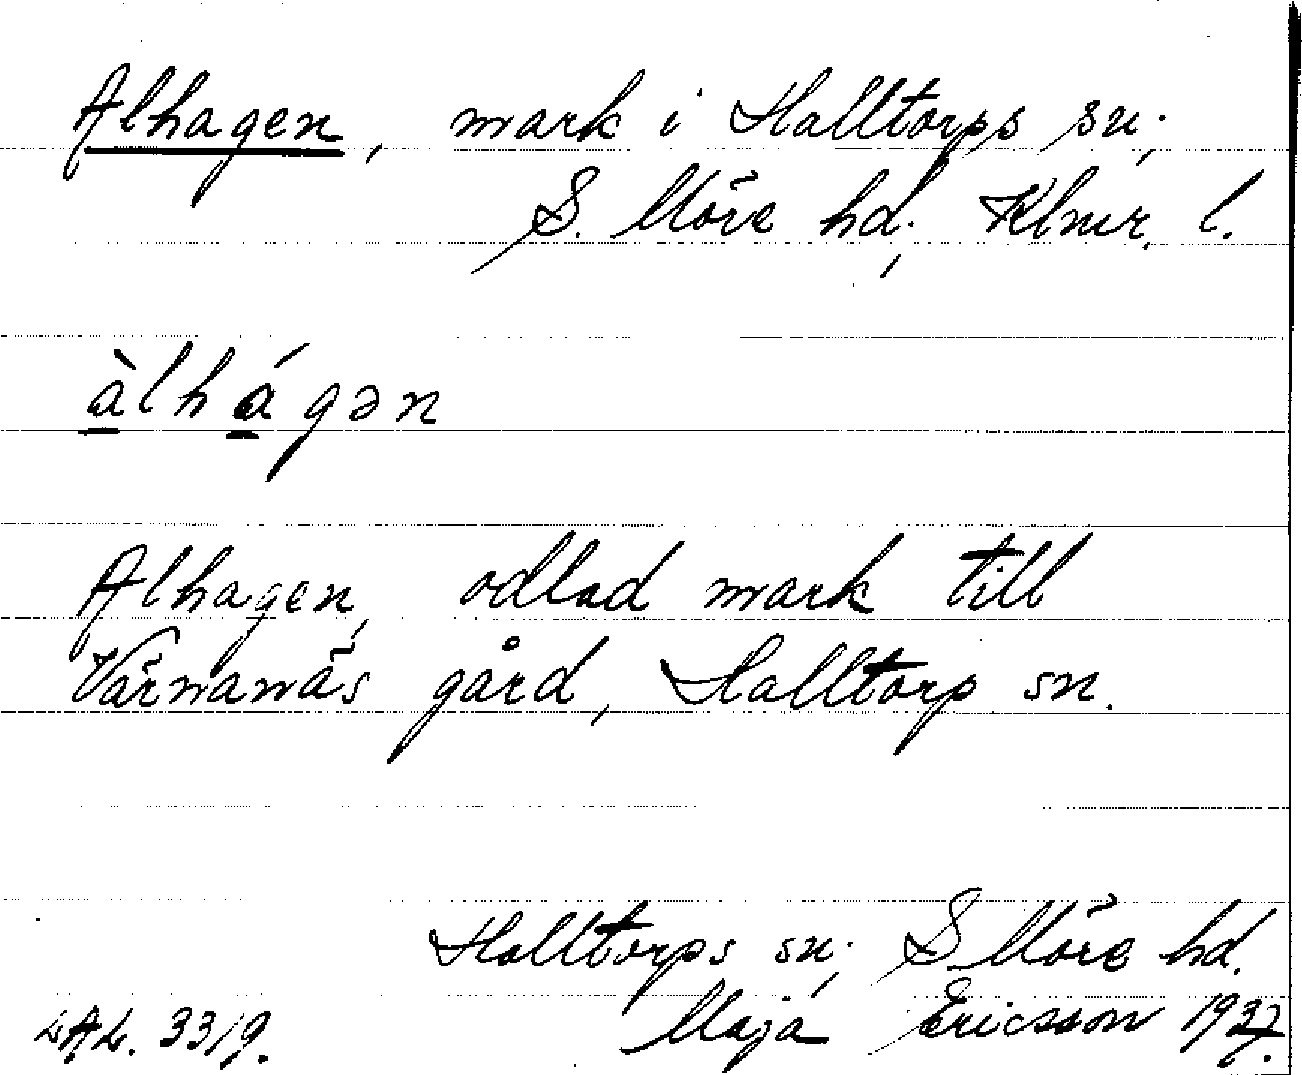 Alhagen, mark i Halltorps sn.,
S. Möre hd., Klmr. l.
à̱lhá̱gən
Alhagen, odlad mark till
Värnanäs gård, Halltorp sn.
Halltorps sn., S. Möre hd.
LAL. 3319. Maja Ericsson 1937.